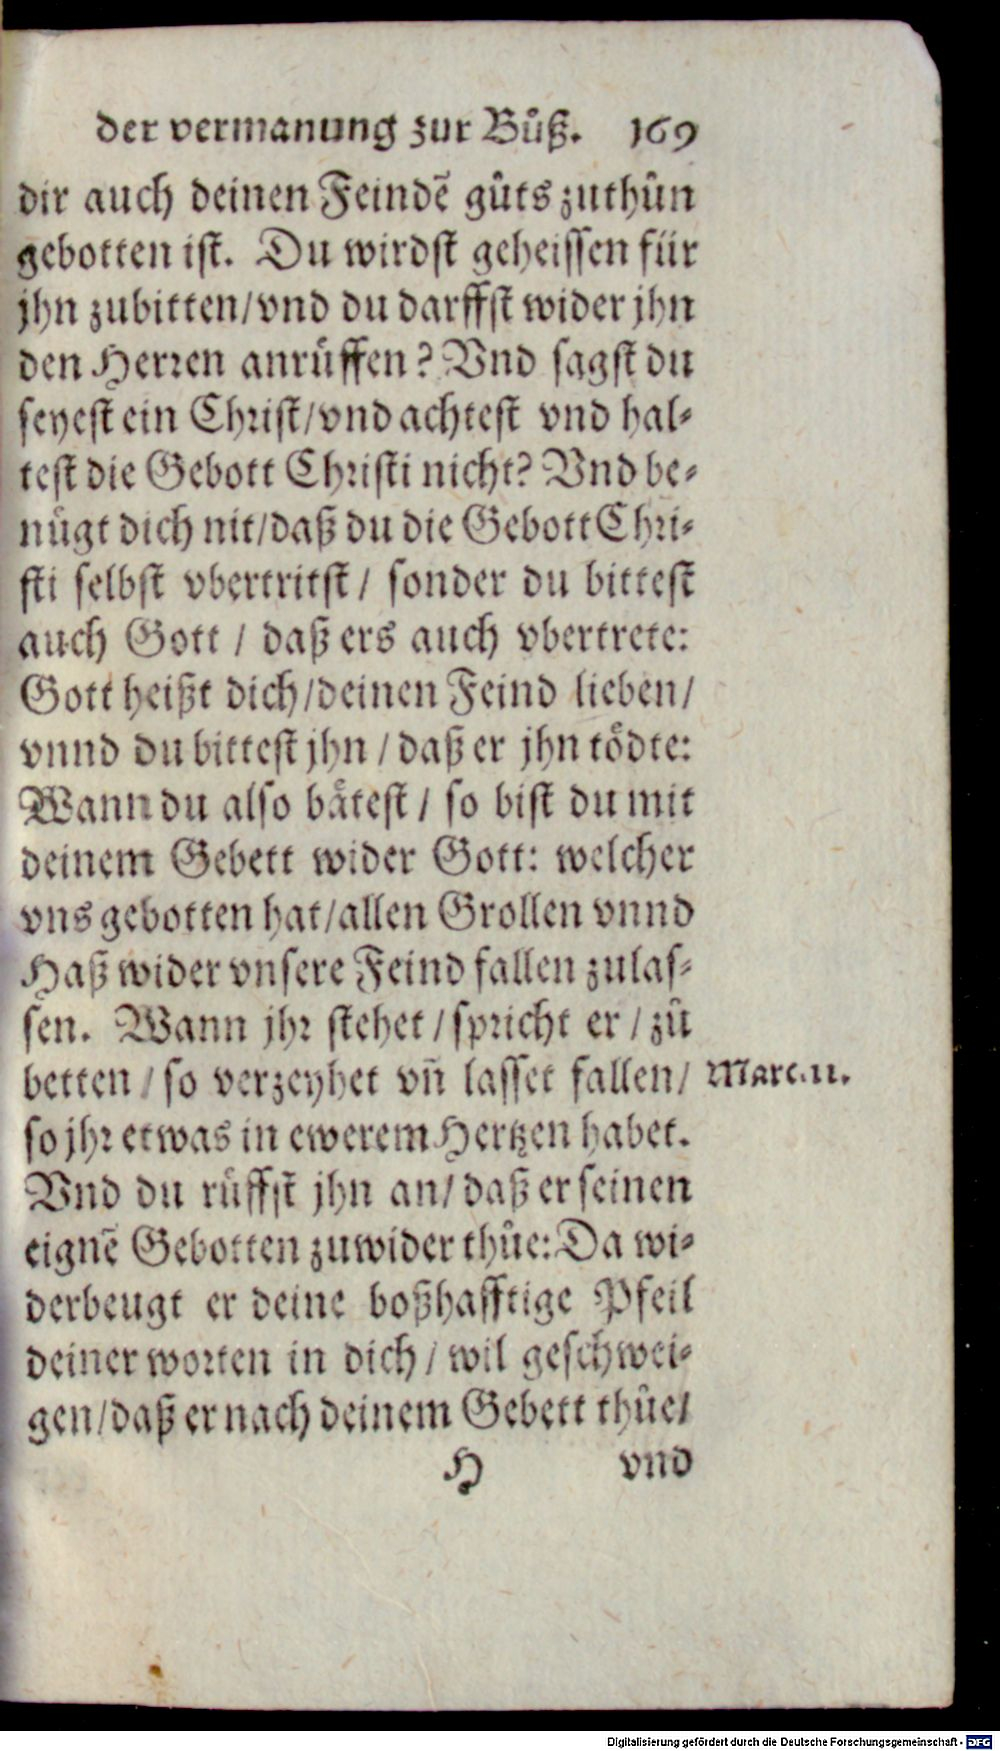 der vermanung zur Bůß. 169
dir auch deinen Feindẽ gůts zuthůn
gebotten ist. Du wirdst geheissen für
jhn zubitten/vnd du darffst wider jhn
den Herren anrůffen? Vnd sagst du
seyest ein Christ/vnd achtest vnd hal-
test die Gebott Christi nicht? Vnd be-
nügt dich nit/daß du die Gebott Chri-
sti selbst vbertritst/ sonder du bittest
auch Gott / daß ers auch vbertrete:
Gott heißt dich/deinen Feind lieben/
vnnd du bittest jhn / daß er jhn tödte:
Wann du also bätest / so bist du mit
deinem Gebett wider Gott: welcher
vns gebotten hat/allen Grollen vnnd
Haß wider vnsere Feind fallen zulas-
sen. Wann jhr stehet / spricht er / zů
betten / so verzeyhet vñ lasset fallen/ Marc.11.
so jhr etwas in ewerem Hertzen habet.
Vnd du růffst jhn an/ daß er seinen
eignẽ Gebotten zuwider thůe: Da wi-
derbeugt er deine boßhafftige Pfeil
deiner worten in dich / wil geschwei-
gen/daß er nach deinem Gebett thůe/
H vnd
Digitalisierung gefördert durch die Deutsche Forschungsgemeinschaft - DFG